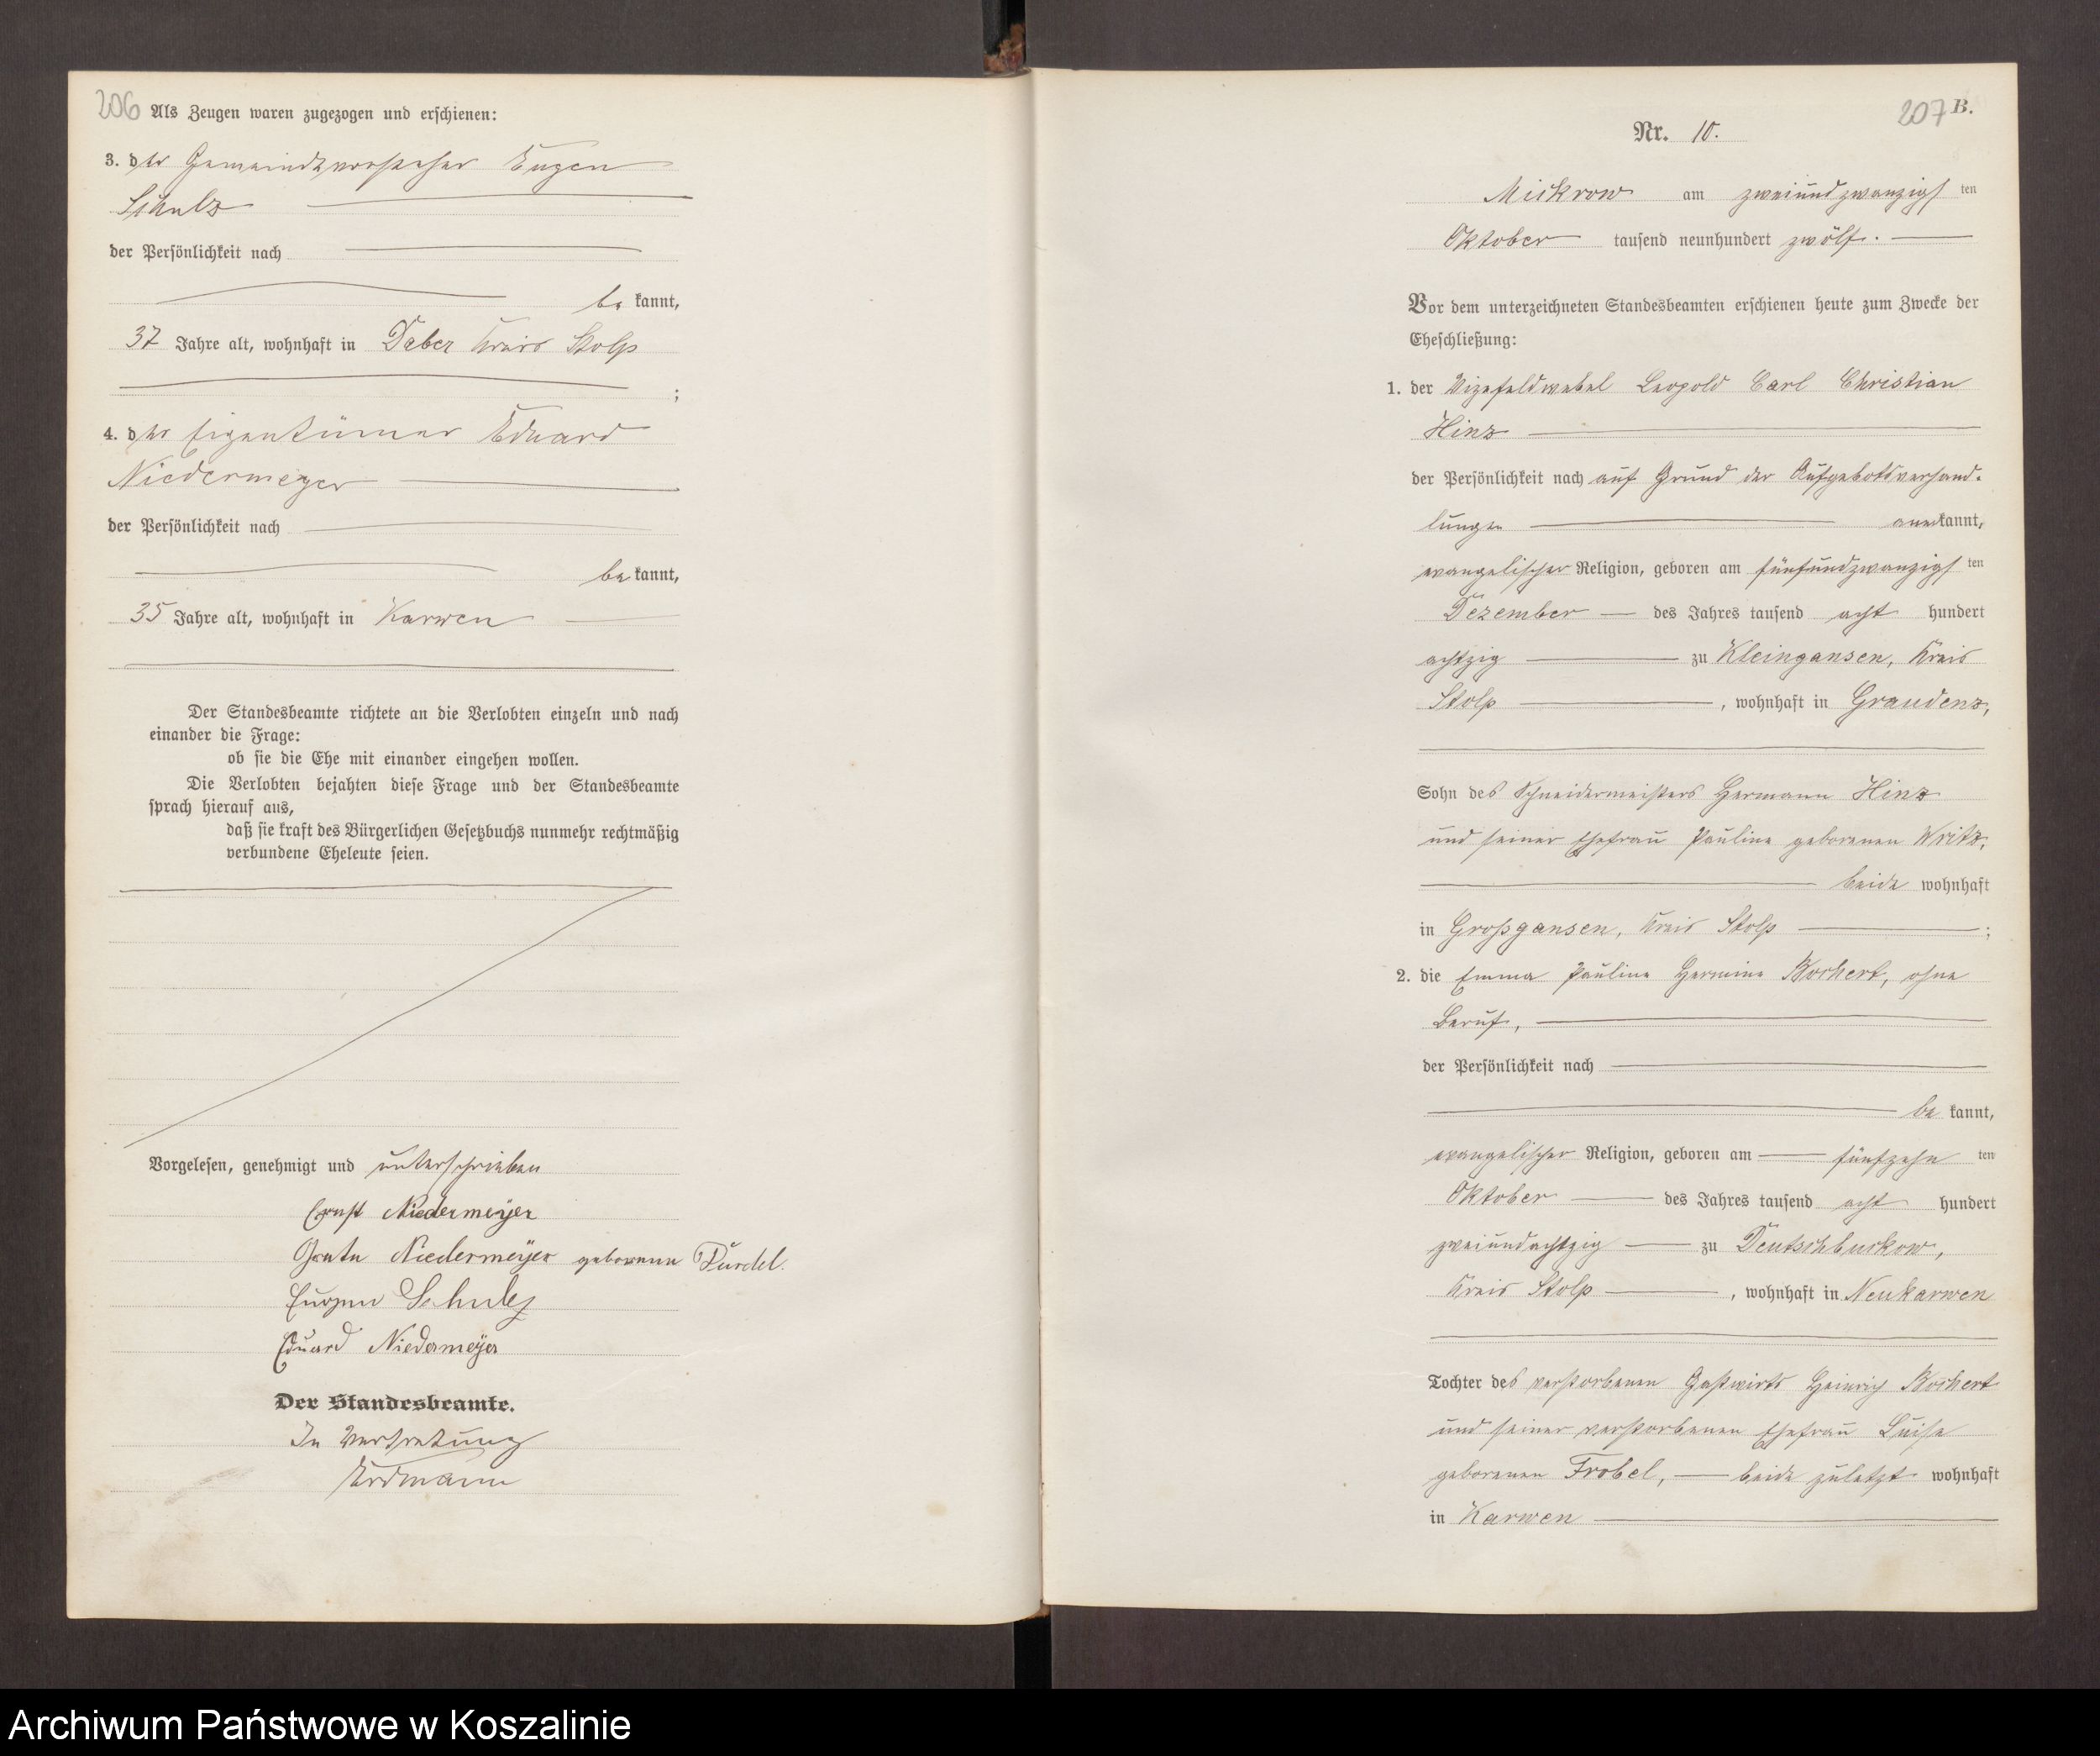 206 Als Zeugen waren zugezogen und erschienen:
3. der Gemeindevorsteher Eugen
Schulz
der Persönlichkeit nach
be kannt,
37 Jahre alt, wohnhaft in Daber Kreis Stolp
;
4. der Eigentümer Eduard
Niedermeyer
der Persönlichkeit nach
be kannt,
35 Jahre alt, wohnhaft in Karwen
Der Standesbeamte richtete an die Verlobten einzeln und nach
einander die Frage:
ob sie die Ehe mit einander eingehen wollen.
Die Verlobten bejahten diese Frage und der Standesbeamte
sprach hierauf aus,
daß sie kraft des Bürgerlichen Gesetzbuchs nunmehr rechtmäßig
verbundene Eheleute seien.
Vorgelesen, genehmigt und unterschrieben
Ernst Niedermeyer
Niedermeyer geborene
Eugen Schulz
Eduard Niedermeyer
Der Standesbeamte.
In Vertretung
Erdmann
207 B.
Nr. 10.
Mickrow am zweiundzwanzigs ten
Oktober tausend neunhundert zwölf.
Vor dem unterzeichneten Standesbeamten erschienen heute zum Zwecke der
Eheschließung:
1. der Vizefeldwebel Leopold Carl Christian
Hinz
der Persönlichkeit nach auf Grund der Aufgebotsverhand-
lungen anerkannt,
evangelischer Religion, geboren am fünfundzwanzigs ten
Dezember des Jahres tausend acht hundert
achtzig zu Kleingansen, Kreis
Stolp, wohnhaft in Graudenz,
Sohn des Schneidermeisters Hermann Hinz
und seiner Ehefrau Pauline geborenen
beide wohnhaft
in Großgansen, Kreis Stolp ;
2. die Emma Pauline Hermine ohne
Beruf,
der Persönlichkeit nach
be kannt,
evangelischer Religion, geboren am fünfzehn ten
Oktober des Jahres tausend acht hundert
zweiundachtzig zu Deutschbuckow,
Kreis Stolp, wohnhaft in Neukarwen
Tochter des verstorbenen Gastwirts Heinrich
und seiner verstorbenen Ehefrau Luise
geborenen Frobel, beide zuletzt wohnhaft
in Karwen
Archiwum Państwowe w Koszalinie